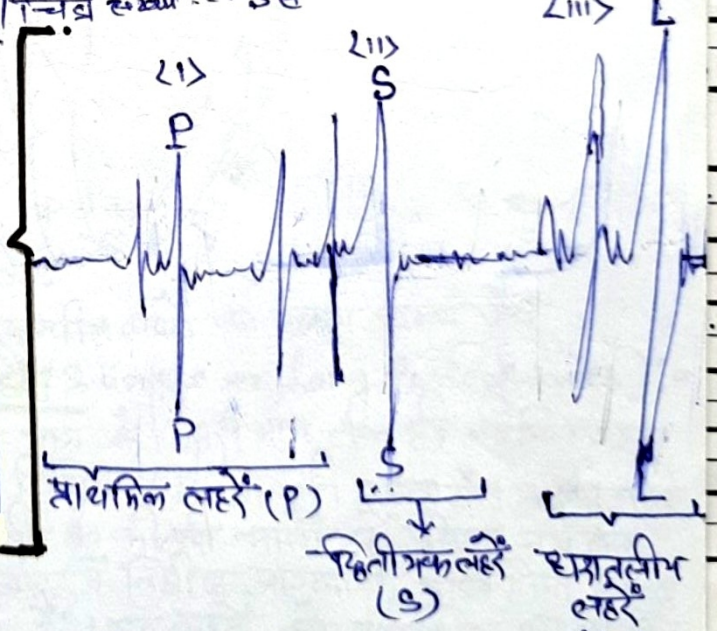 चित्र संख्या
<I>
<II>
<III>
P
S
L
P
S
L
प्राथमिक लहरें (P)
द्वितीयक लहरें
(S)
धरातलीय
लहरें